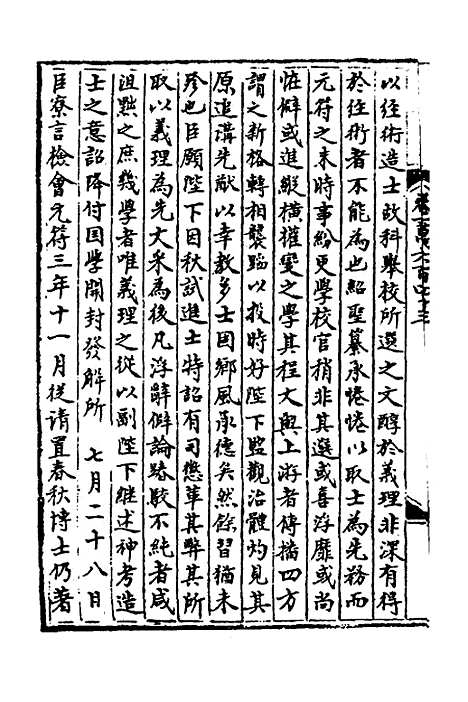 以经術造士故科舉校所選之文醇於義理非深有得
於经術者不能為也紹聖纂承惓惓以取士為先務而
元符之末時事紛更學校官稍非其選或喜浮靡或尚
怪僻或進縱橫權变之學其程文與上游者傳播四方
謂之新格轉相襲蹈以投時好陛下監觀治體灼見其
原追溝先猷以幸教多士固鄉風承德矣然餘習猶未
殄也臣願陛下因秋試進士特詔有司懲革其弊其所
取以義理為先文采為後凡浮辭僻論踳駁不純者咸
沮黜之庶幾學者唯義理之從以副陛下继述神考造
士之意詔降付国學開封發解所　七月二十八日
臣寮言檢會元符三年十一月從请置春秋博士仍著